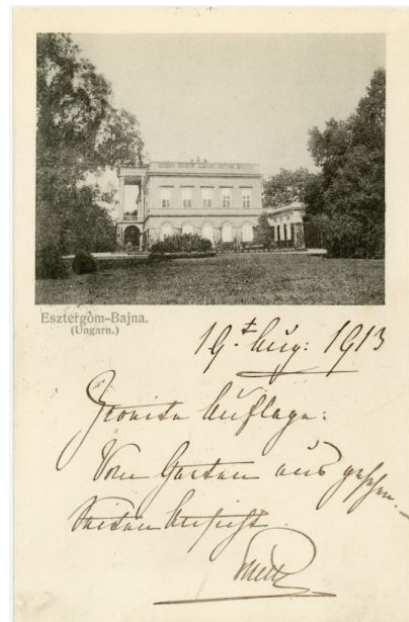 Esztergom-Bajna.
(Ungarn.)
19. Aug: 1913
Zweite Auflage:
Vom Garten aus gesehen.
Seiten Ansicht.